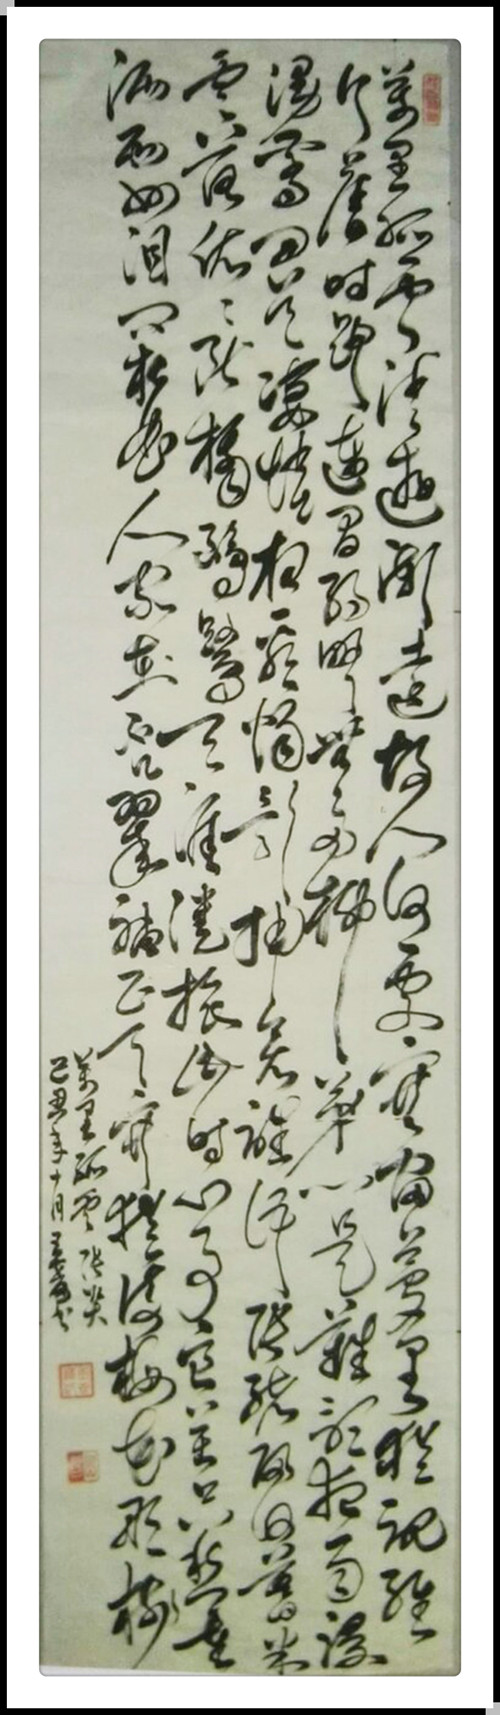 萬里孤雲清遊漸遠故人何處寒窗夢里猶記經
行舊時路連昌約略無多柳第一是難聽夜雨
漫驚回凄悄相看燭影擁衾誰語張緒歸何暮半
零落依依斷橋鷗鷺天涯倦旅此時心事良苦只愁重
灑西州淚問杜曲人家在否恐翠袖正天寒猶倚梅花那樹
萬里孤雲 張炎
己丑年十月